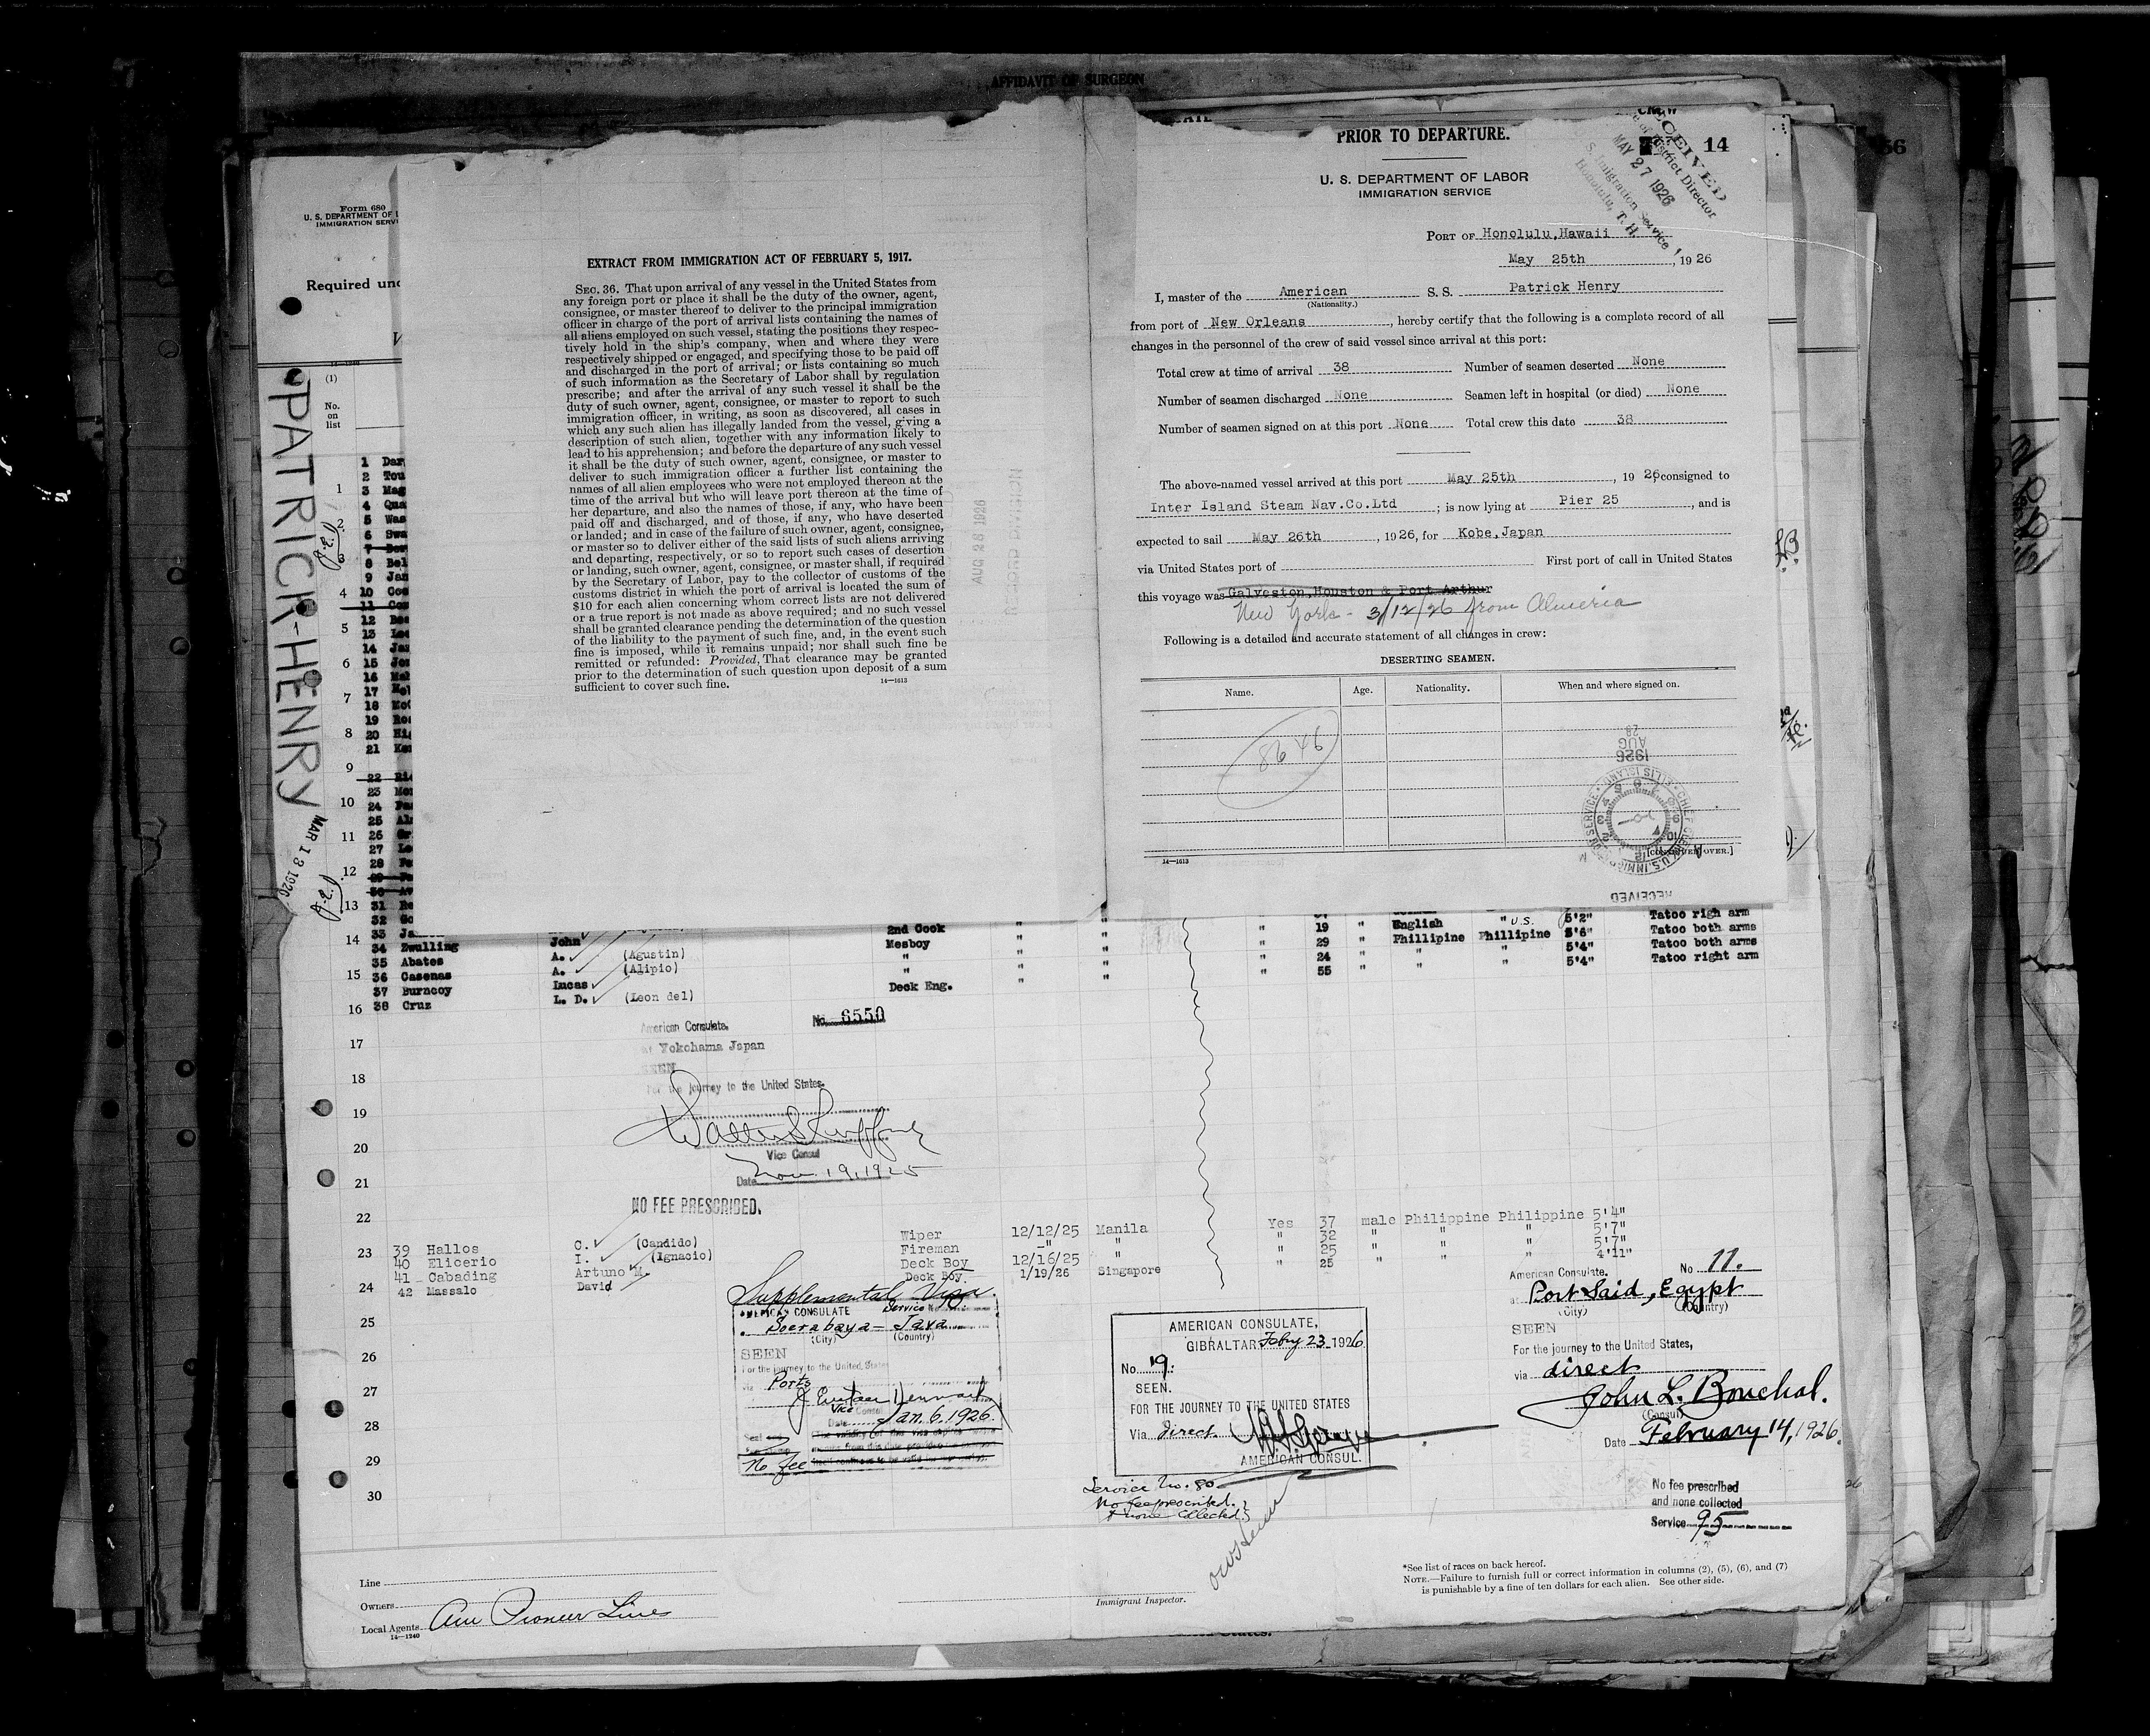 AFFIDAVIT OF SURGEON
56
Form 680
U. S. DEPARTMENT OF L
IMMIGRATION SERVI
Required und
(1)
No.
on
list
PATRICK-HENRY
MAR 13 1926
EXTRACT FROM IMMIGRATION ACT OF FEBRUARY 5, 1917.
SEC. 36. That upon arrival of any vessel in the United States from
any foreign port or place it shall be the duty of the owner, agent,
consignee, or master thereof to deliver to the principal immigration
officer in charge of the port of arrival lists containing the names of
all aliens employed on such vessel, stating the positions they respec-
tively hold in the ship's company, when and where they were
respectively shipped or engaged, and specifying those to be paid off
and discharged in the port of arrival; or lists containing so much
of such information as the Secretary of Labor shall by regulation
prescribe; and after the arrival of any such vessel it shall be the
duty of such owner, agent, consignee, or master to report to such
immigration officer, in writing, as soon as discovered, all cases in
which any such alien has illegally landed from the vessel, giving a
description of such alien, together with any information likely to
lead to his apprehension; and before the departure of any such vessel
it shall be the duty of such owner, agent, consignee, or master to
deliver to such immigration officer a further list containing the
names of all alien employees who were not employed thereon at the
time of the arrival but who will leave port thereon at the time of
her departure, and also the names of those, if any, who have been
paid off and discharged, and of those, if any, who have deserted
or landed; and in case of the failure of such owner, agent, consignee,
or master so to deliver either of the said lists of such aliens arriving
and departing, respectively, or so to report such cases of desertion
or landing, such owner, agent, consignee, or master shall, if required
by the Secretary of Labor, pay to the collector of customs of the
customs district in which the port of arrival is located the sum of
$10 for each alien concerning whom correct lists are not delivered
or a true report is not made as above required; and no such vessel
shall be granted clearance pending the determination of the question
of the liability to the payment of such fine, and, in the event such
fine is imposed, while it remains unpaid; nor shall such fine be
remitted or refunded: Provided, That clearance may be granted
prior to the determination of such question upon deposit of a sum
sufficient to cover such fine.
14—1613
AUG 28 1926
RECORD DIVISION
PRIOR TO DEPARTURE.
14
RECEIVED
District Director
MAY 27 1926
Immigration Service
Honolulu, T. H.
U. S. DEPARTMENT OF LABOR
IMMIGRATION SERVICE
PORT OF Honolulu,Hawaii
May 25th, 1926
I, master of the American S. S. Patrick Henry
(Nationality.)
from port of New Orleans, hereby certify that the following is a complete record of all
changes in the personnel of the crew of said vessel since arrival at this port:
Total crew at time of arrival 38 Number of seamen deserted None
Number of seamen discharged None Seamen left in hospital (or died) None
Number of seamen signed on at this port None Total crew this date 38
The above-named vessel arrived at this port May 25th, 1926, consigned to
Inter Island Steam Nav.Co.Ltd ; is now lying at Pier 25, and is
expected to sail May 26th, 1926, for Kobe,Japan
via United States port of First port of call in United States
this voyage was Galveston,Houston & Port Arthur
New York - 3/12/26 from Almeria
Following is a detailed and accurate statement of all changes in crew:
DESERTING SEAMEN.
Name. Age. Nationality. When and where signed on.
8646
1926
AUG
28
[CONTINUED OVER.]
14—1613
RECEIVED
1 Dar
2 Tou
3 Mag
4 Qua
5 Was
6 Swa
8 Bel
9 Jan
10
11
12
13
14
15
16
17
18
19
20
21
22
23
24
25
26
27
28
29
30
31
32
33
34 Zwulling John 2nd Cook " " 19 " English " U.S. 5'6" Tatoo both arms
35 Abates A. (Agustin) Mesboy " " 29 " Phillipine Phillipine 5'4" Tatoo both arms
36 Casenas A. (Alipio) " " " 24 " " " 5'4" Tatoo right arm
37 Burncoy Lucas " " 55 "
38 Cruz L. D. (Leon del) Deck Eng. "
American Consulate. No. 6550
at Yokohama Japan
SEEN
For the journey to the United States.
Vice Consul
Date Nov. 19, 1925
NO FEE PRESCRIBED.
39 Hallos C. (Candido) Wiper 12/12/25 Manila Yes 37 male Philippine Philippine 5'4"
40 Elicerio I. (Ignacio) Fireman -" " " 32 " " " 5'7"
41 Cabading Arturo M. Deck Boy 12/16/25 " " 25 " " " 5'7"
42 Massalo David Deck Boy. 1/19/26 Singapore " 25 " " " 4'11"
Supplemental Visa.
AMERICAN CONSULATE Service No.
Soerabaya - Java
(City) (Country)
SEEN
For the journey to the United States
via Ports
Vice Consul
Date Jan. 6. 1926.
No fee
AMERICAN CONSULATE,
GIBRALTAR Febry 23 1926
No. 19.
SEEN.
FOR THE JOURNEY TO THE UNITED STATES
Via direct.
AMERICAN CONSUL.
Service No. 80
No fee prescribed.
& none collected.
American Consulate. No 11.
at Port Said, Egypt
(City) (Country)
SEEN
For the journey to the United States,
via direct
John L. Bouchal.
(Consul)
Date February 14, 1926.
No fee prescribed
and none collected
Service 95
Line
Owners
Local Agents Am Pioneer Lines
14—1240
Immigrant Inspector.
*See list of races on back hereof.
NOTE.—Failure to furnish full or correct information in columns (2), (5), (6), and (7)
is punishable by a fine of ten dollars for each alien. See other side.